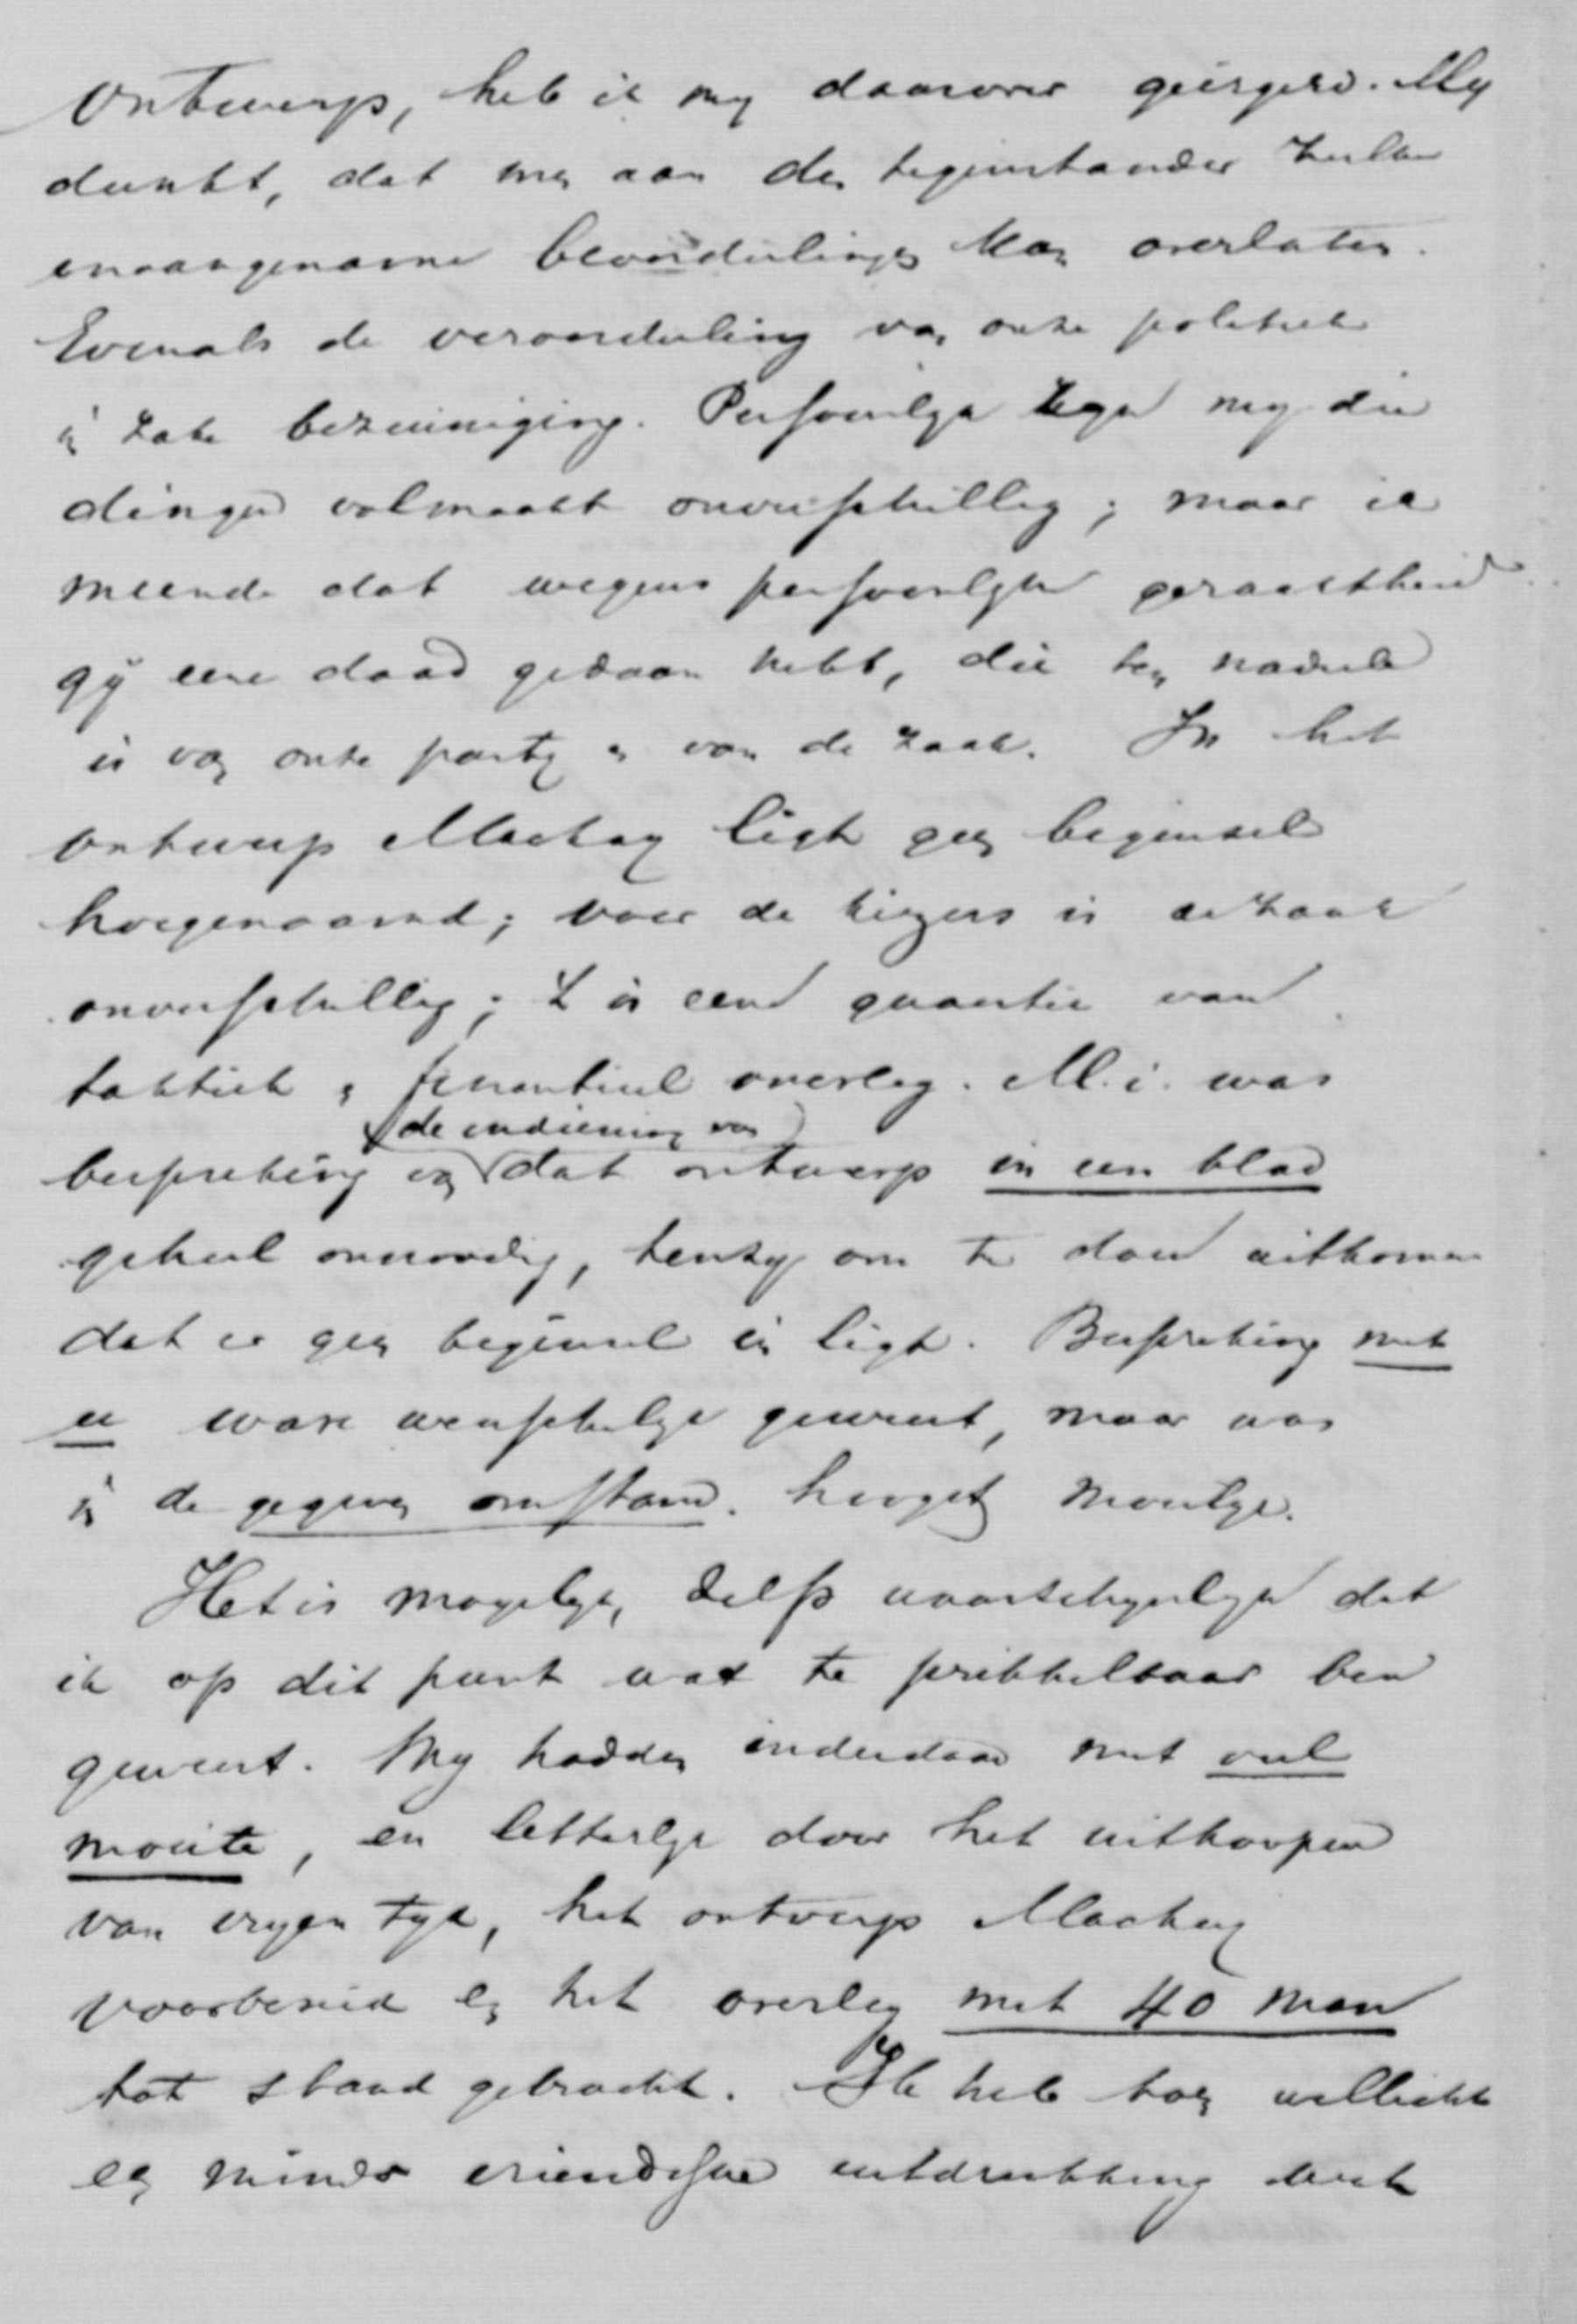 ontwerp, heb ik my daarover geërgerd. My
dunkt, dat men aan den tegenstander zulke
onaangename beoordeelingen kan overlaten.
Evenals de veroordeeling van onze politiek
in zake bezuiniging. Persoonlyk zyn my die
dingen volmaakt onverschillig; maar ik
meende dat wegens persoonlyke geraaktheid
gy eene daad gedaan hebt, die ten nadeele
is van onze party en van de zaak. In het
ontwerp Mackay ligt geen beginsel
hoegenaamd; voor de kiezers is de zaak
onverschillig; 't is een quaestie van
taktiek en financieel overleg. M.i. was
de indiening van
bespreking van dat ontwerp in een blad
geheel onnoodig, tenzy om te doen uitkomen
dat er geen beginsel in ligt. Bespreking met
u ware wenschelyk geweest, maar was
in de gegeven omstand. hoogst moeilyk.
Het is mogelyk, zelfs waarschynlyk dat
ik op dit punt wat te prikkelbaar ben
geweest. Wy hadden inderdaad met veel
moeite, en letterlyk door het uitkoopen
van vryen tyd, het ontwerp Mackay
voorbereid en het overleg met 40 man
tot stand gebracht. Ik heb toen wellicht
een minder vriendelyke uitdrukking